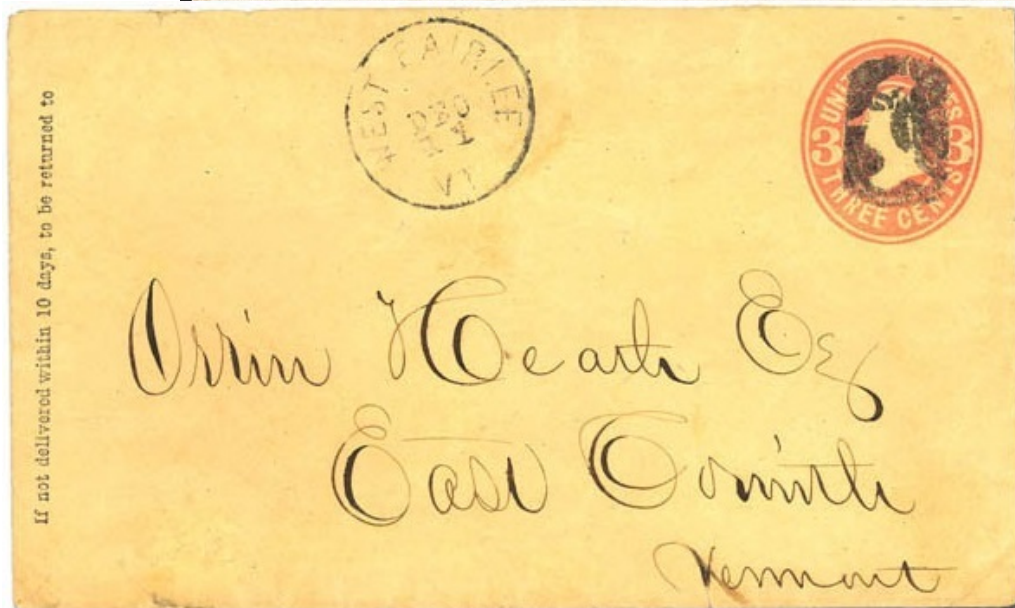 If not delivered within 10 days, to be returned to
WEST FAIRLEE
DEC
VT
UNITED STATES
3 3
THREE CENTS
Orrin Heath Esq
East Corinth
Vermont